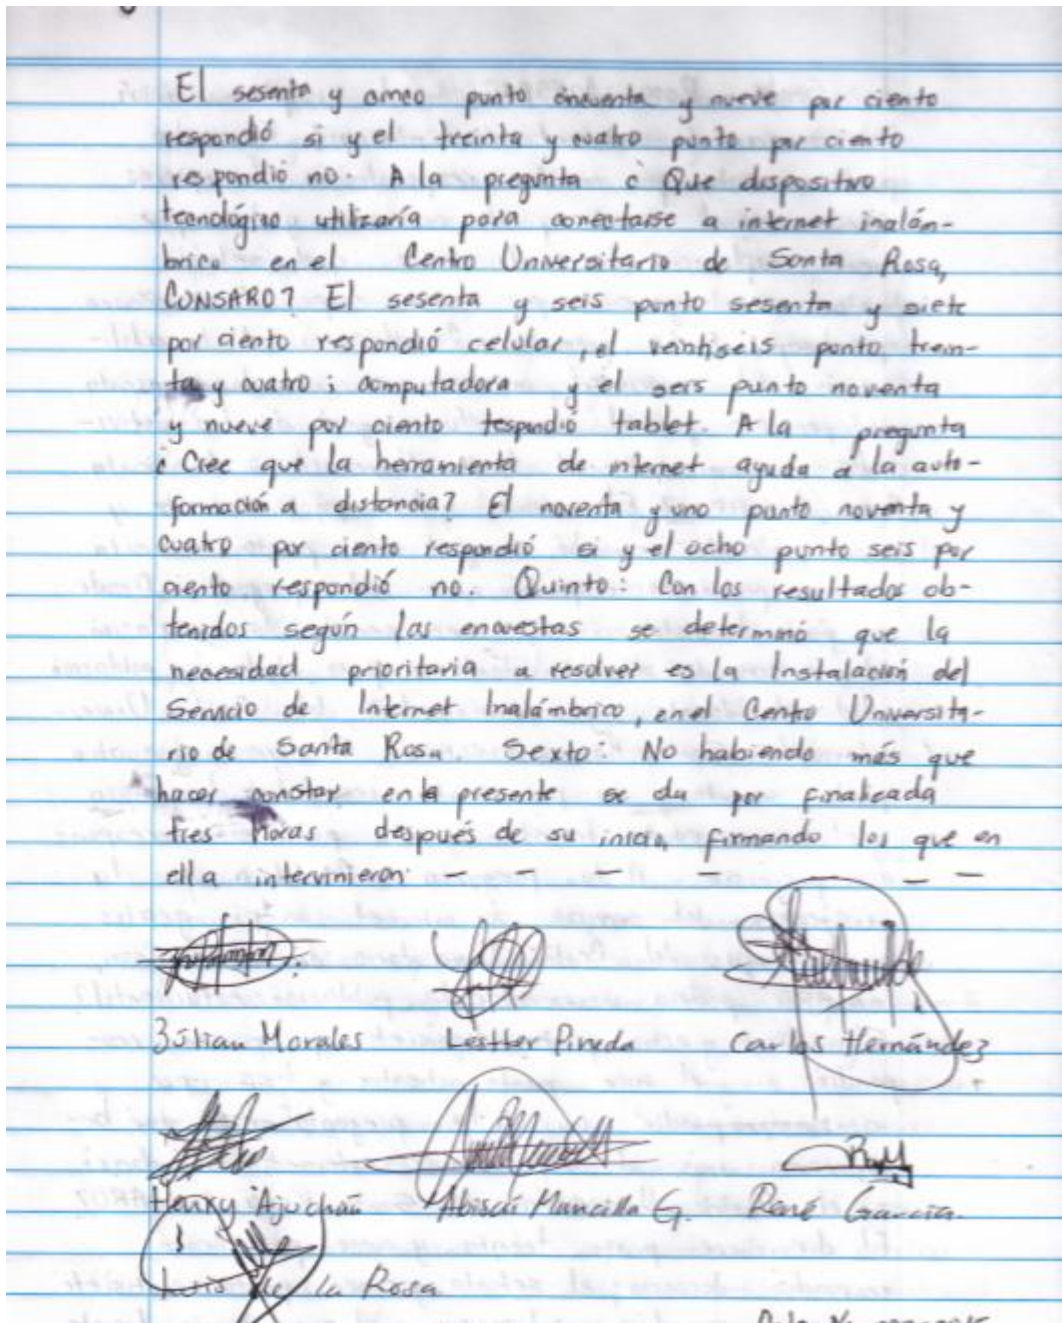 El sesenta y cinco punto cincuenta y nueve por ciento
respondió si y el treinta y cuatro punto por ciento
respondió no. A la pregunta ¿ Que dispositivo
tecnológico utilizaría para conectarse a internet inalám-
brico en el Centro Universitario de Santa Rosa,
CUNSARO? El sesenta y seis punto sesenta y siete
por ciento respondió celular, el veintiseis punto trein-
ta y cuatro ; computadora y el seis punto noventa
y nueve por ciento respondió tablet. A la pregunta
¿ Cree que la herramienta de internet ayuda a la auto-
formación a distancia? El noventa y uno punto noventa y
cuatro por ciento respondió si y el ocho punto seis por
ciento respondió no. Quinto: Con los resultados ob-
tenidos según las encuestas se determinó que la
necesidad prioritaria a resolver es la Instalación del
Servicio de Internet Inalámbrico, en el Centro Universita-
rio de Santa Rosa. Sexto: No habiendo más que
hacer constar en la presente se da por finalizada
tres horas después de su inicio, firmando los que en
ella intervinieron: - - - - - -
Morales Lesther Pineda Carlos Hernández
Henry Ajuchan Mancilla G. René García.
Luis de la Rosa